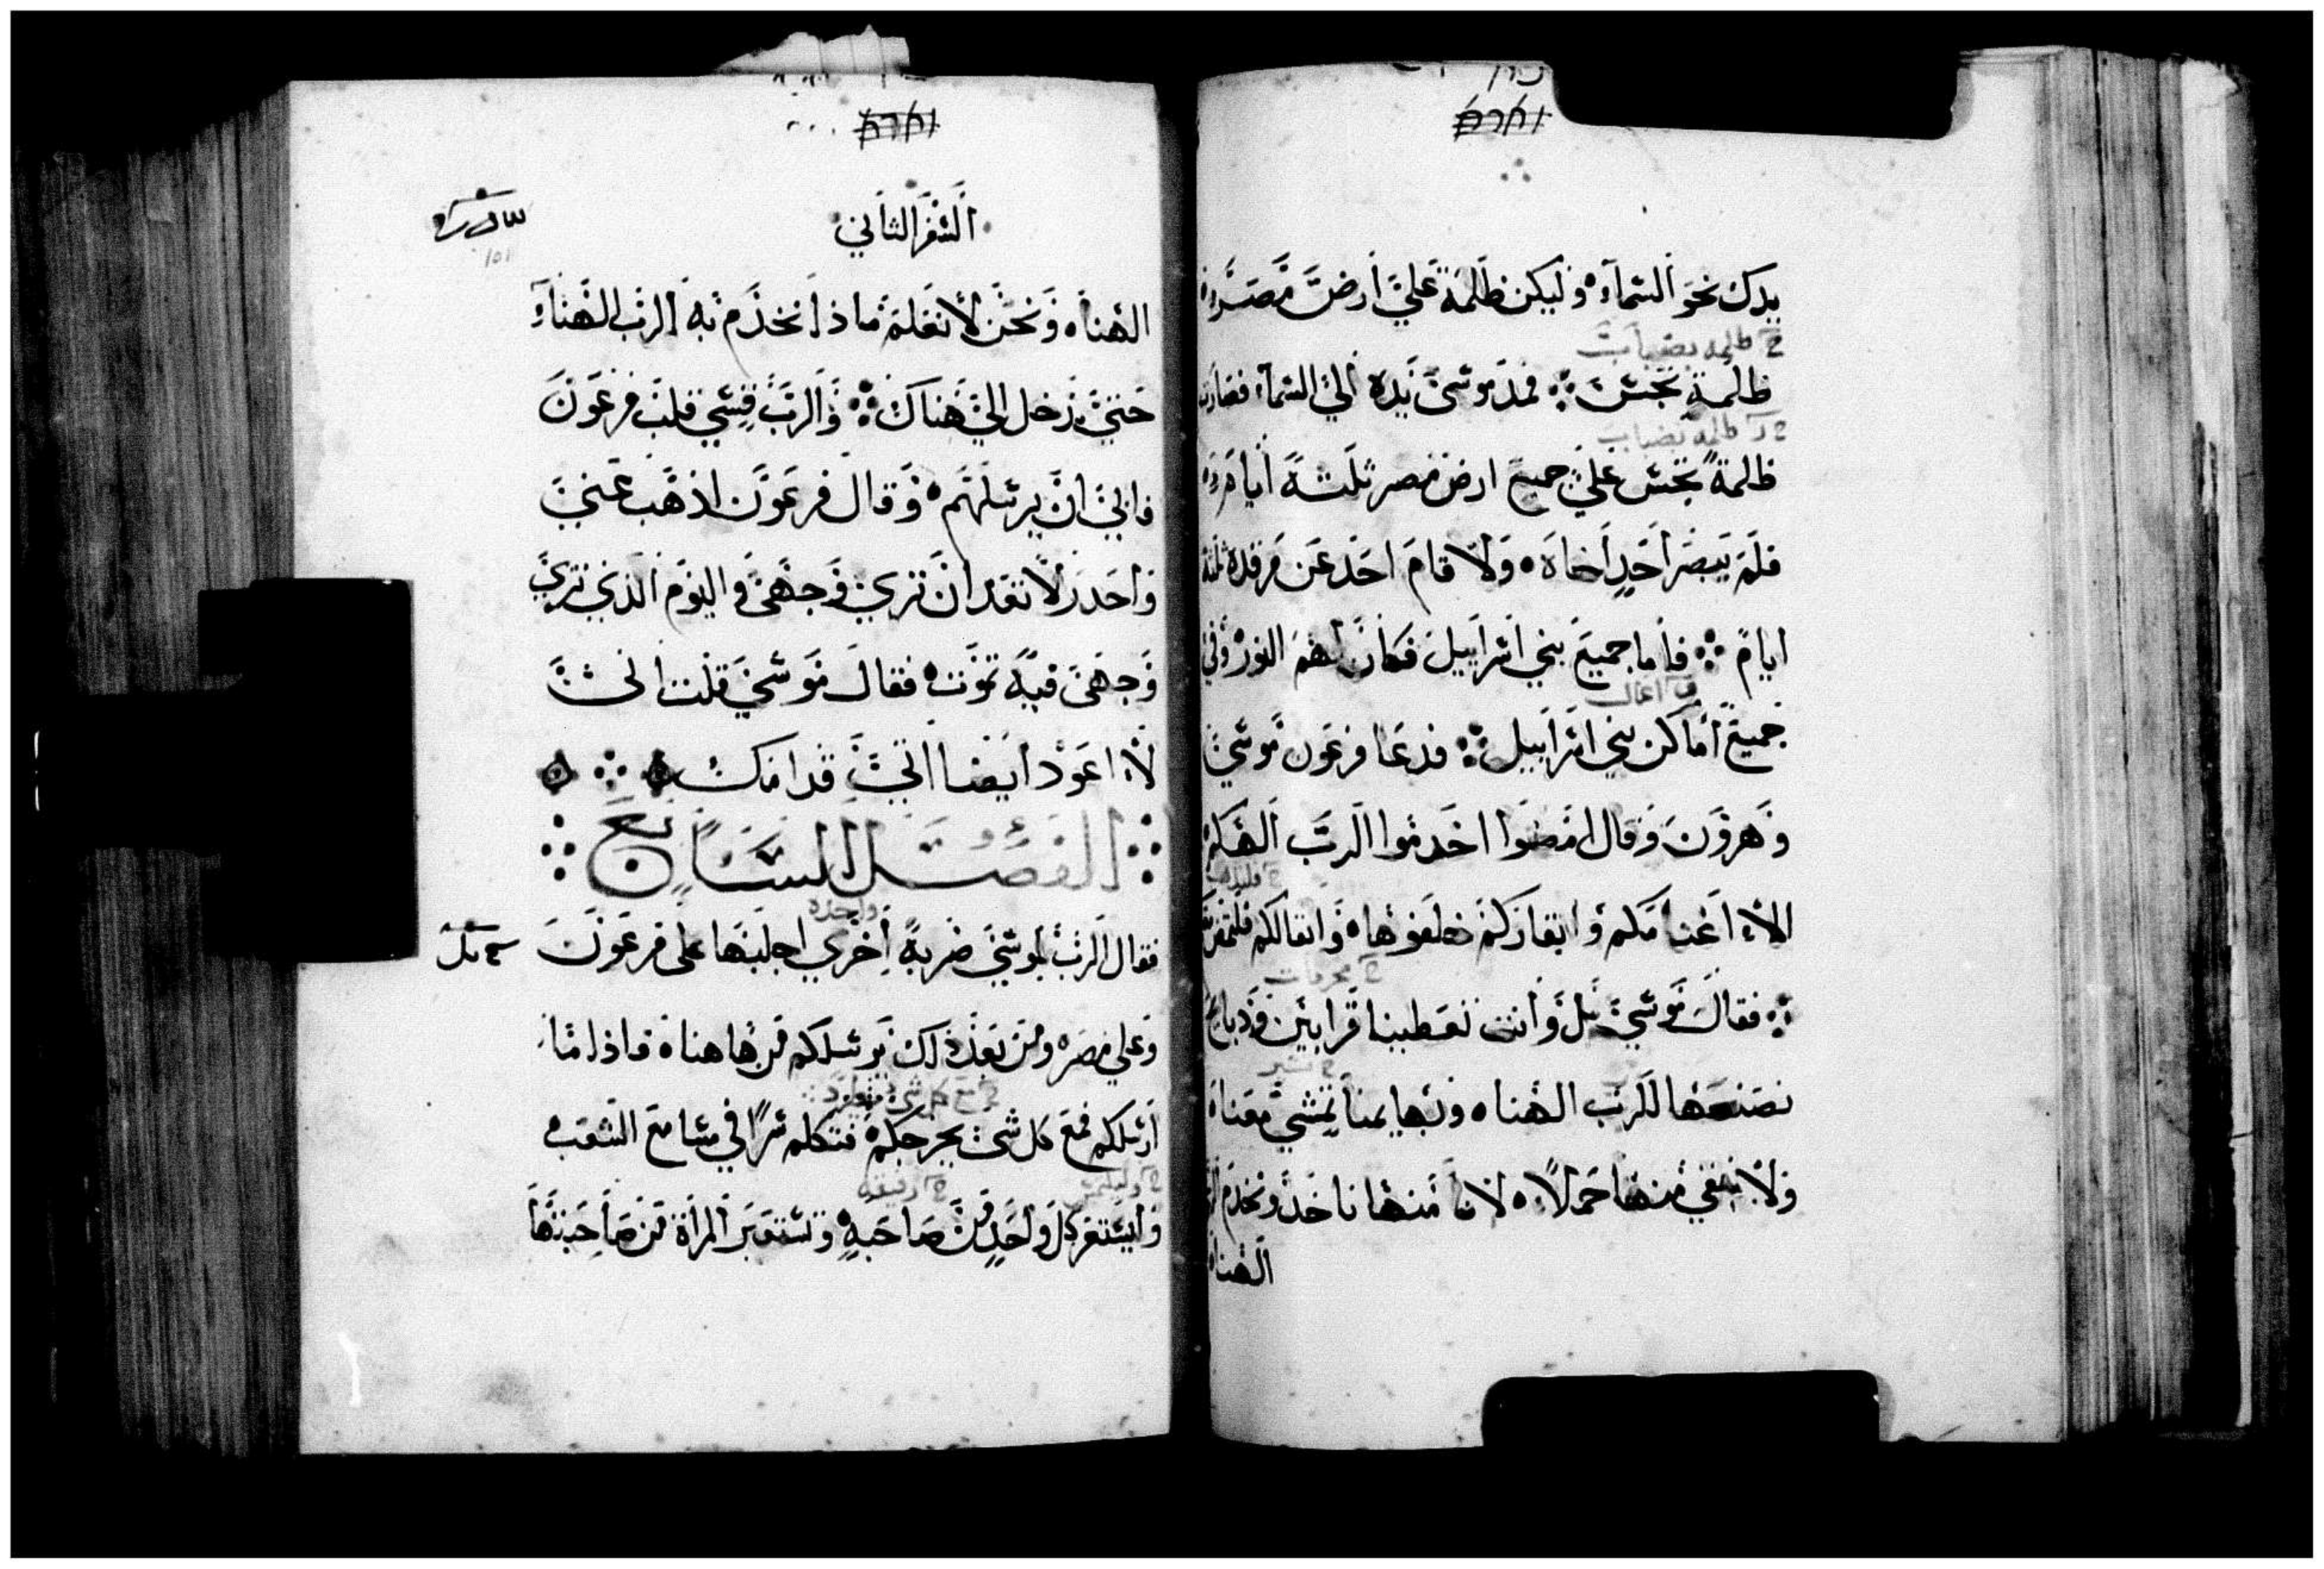 يدك نحو السمآء وليكن ظلمة علي أرض مصر
ح ظلمه بضباب
ظلمة تجس فمد موسى يده الي السمآء فصارت
ظلمه بضباب
ظلمة تجس علي جميع ارض مصر ثلثة أيام
فلم يبصر أحد أخاه ولا قام احد عن مرقده ثلثة
ايام فأما جميع بني اسرابيل فكان لهم النور في
جميع أماكن بني اسرابيل فدعا فرعون موسي
وهرون وقال امضوا اخدموا الرب الهكم
الا اغنامكم وابقاركم خلفوها واثقالكم
ح محرقات
فقال موسي بل وأنت تعطينا قرابين وذبايح
ح تسير
نصنعها للرب الهنا وبهايمنا تمشي معنا
ولا نبقي منها حملا لانا منها ناخذ ونخدم الرب
الهنا
السفر الثاني
الهنا ونحن لا نعلم ماذا نخدم به الرب الهنا
حتي ندخل الي هناك والرب قسي قلب فرعون
فابي ان يرسلهم وقال فرعون اذهب عني
واحدر لا تعد ان تري وجهي واليوم الذي تري
وجهي فيه تموت فقال موسي قلت اني
لا اعود أيضا اتي قدامك
الفصل السابع
واحده
فقال الرب لموسي ضربة أخري اجلبها على فرعون
وعلي مصر ومن بعد ذلك نرسلكم من هاهنا فاذا ما
ح مع كل شي
ارسلكم فمع كل شى يخرجكم فتكلم سرا في مسامع الشعب
ح رفيقه
وليستعر كل واحد من صاحبه وتستعير المرأة من صاحبتها